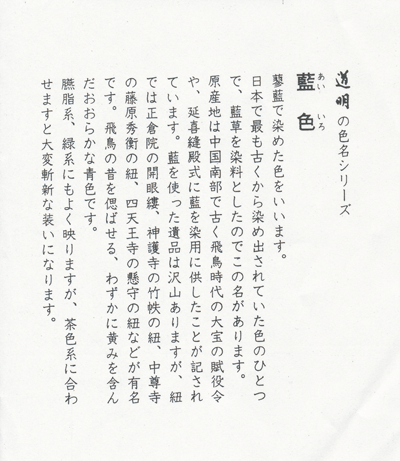 道明の色名シリーズ
あい いろ
藍色
蓼藍で染めた色をいいます。
日本で最も古くから染め出されていた色のひとつ
で、藍草を染料としたのでこの名があります。
原産地は中国南部で古く飛鳥時代の大宝の賦役令
や、延喜縫殿式に藍を染用に供したことが記され
ています。藍を使った遺品は沢山ありますが、紐
では正倉院の開眼縷、神護寺の竹帙の紐、中尊寺
の藤原秀衡の紐、四天王寺の懸守の紐などが有名
です。飛鳥の昔を偲ばせる、わずかに黄みを含ん
だおおらかな青色です。
臙脂系、緑系にもよく映りますが、茶色系に合わ
せますと大変斬新な装いになります。